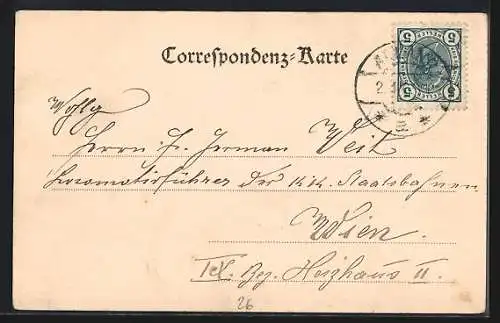 Correspondenz-Karte
5 5
Wohlg
Herrn Fr. Herman Veit
Locomotivführer der k.k. Staatsbahnen
Wien.
Bez. Heizhaus II.
26